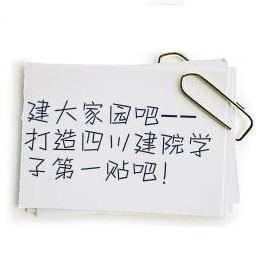 建大家园吧--
打造四川建院学
子第一贴吧!